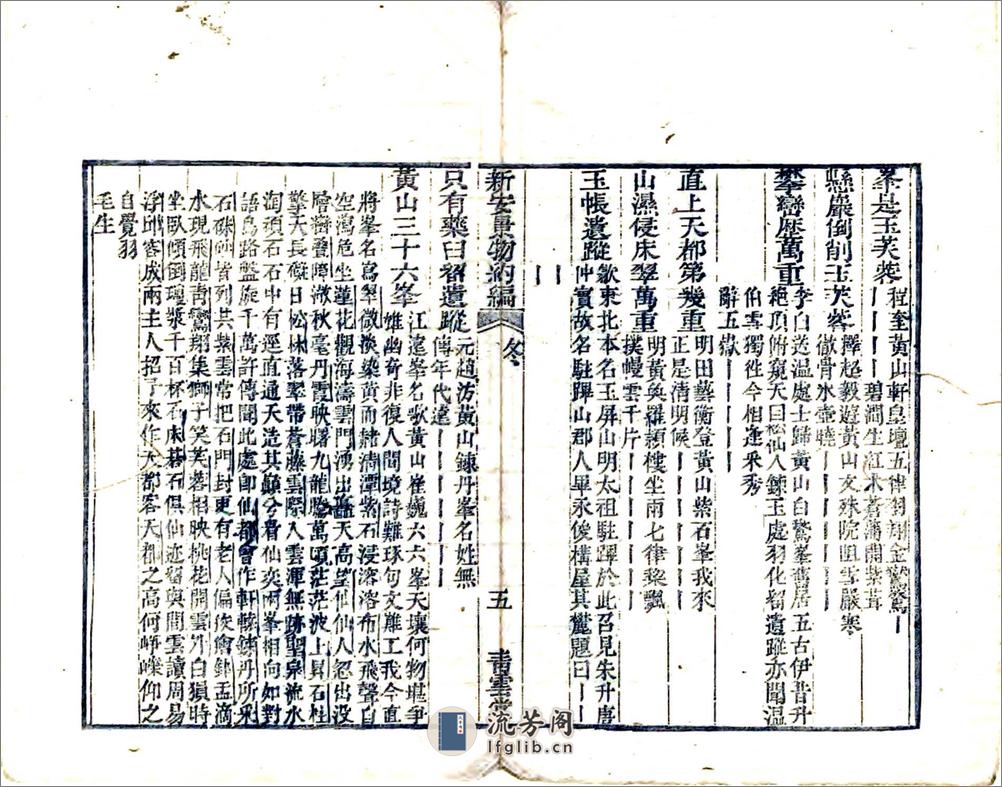 峯是玉芙蓉程奎黃山軒皇壇五律翎翔金
｜｜｜｜｜碧澗生紅朮蒼巖開紫茸
懸巖倒削玉芙蓉釋起毅遊黃山文殊院阻雪嚴寒
徹骨氷壺曉｜｜｜｜｜｜｜
攀巒歷萬重李白送溫處士歸黃山白鵞峯舊居五古伊昔升
絕頂俯窺天目松仙人鍊玉處羽化留遺蹤亦聞溫
伯雪獨徃今相逢采秀
辭五嶽｜｜｜｜｜
直上天都第幾重明田藝衡登黃山紫石峯我來
正是清明候｜｜｜｜｜｜｜
山濕侵床翠萬重明黃奐羅頴樓坐雨七律簾飄
撲幔雲千片｜｜｜｜｜｜｜
玉帳遺蹤歙東北本名玉屏山明太祖駐蹕於此召見朱升唐
仲實故名駐蹕山郡人畢永後構屋其麓題曰｜｜
｜｜
新安景物約編
冬
五
青雲堂
只有藥臼留遺蹤元趙汸黃山鍊丹峯名姓無
傳年代遠｜｜｜｜｜｜｜
黃山三十六峯江遠峯名歌黃山崔巍六六峯天壤何物堪爭
雄幽奇非復人間境詩難琢句文難工我今直
將峯名寫翠微換染黃而赭濤潭紫石浸溶溶布水飛聲自
空瀉危坐蓮花觀海濤雲門湧出與天高望仙仙人忽出没
層嶂疊嶂澈秋毫丹霞映曙九龍騰萬頃茫茫波上昇石柱
擎天長礙日松林落翠帶蒼藤雲際入雲渾無跡聖泉流水
淘頑石石中有逕直通天造其巔兮看仙奕兩峯相向如對
語鳥路盤旋千萬許傳聞此處卽仙都會作軒轅鍊丹所采
石硃砂皆列共紫雲常把石門封更有老人偏疾會鉢盂滴
水現飛龍靑鸞翔集獅子笑芙蓉相映桃花開雲外白猿時
坐臥傾倒瓊漿千百杯石床碁石俱仙迹留與閒雲讀周易
浮邱容成兩主人招予來作天都客天都之高何崢嶸仰之
自覺羽
毛生
流芳阁
lfglib.cn